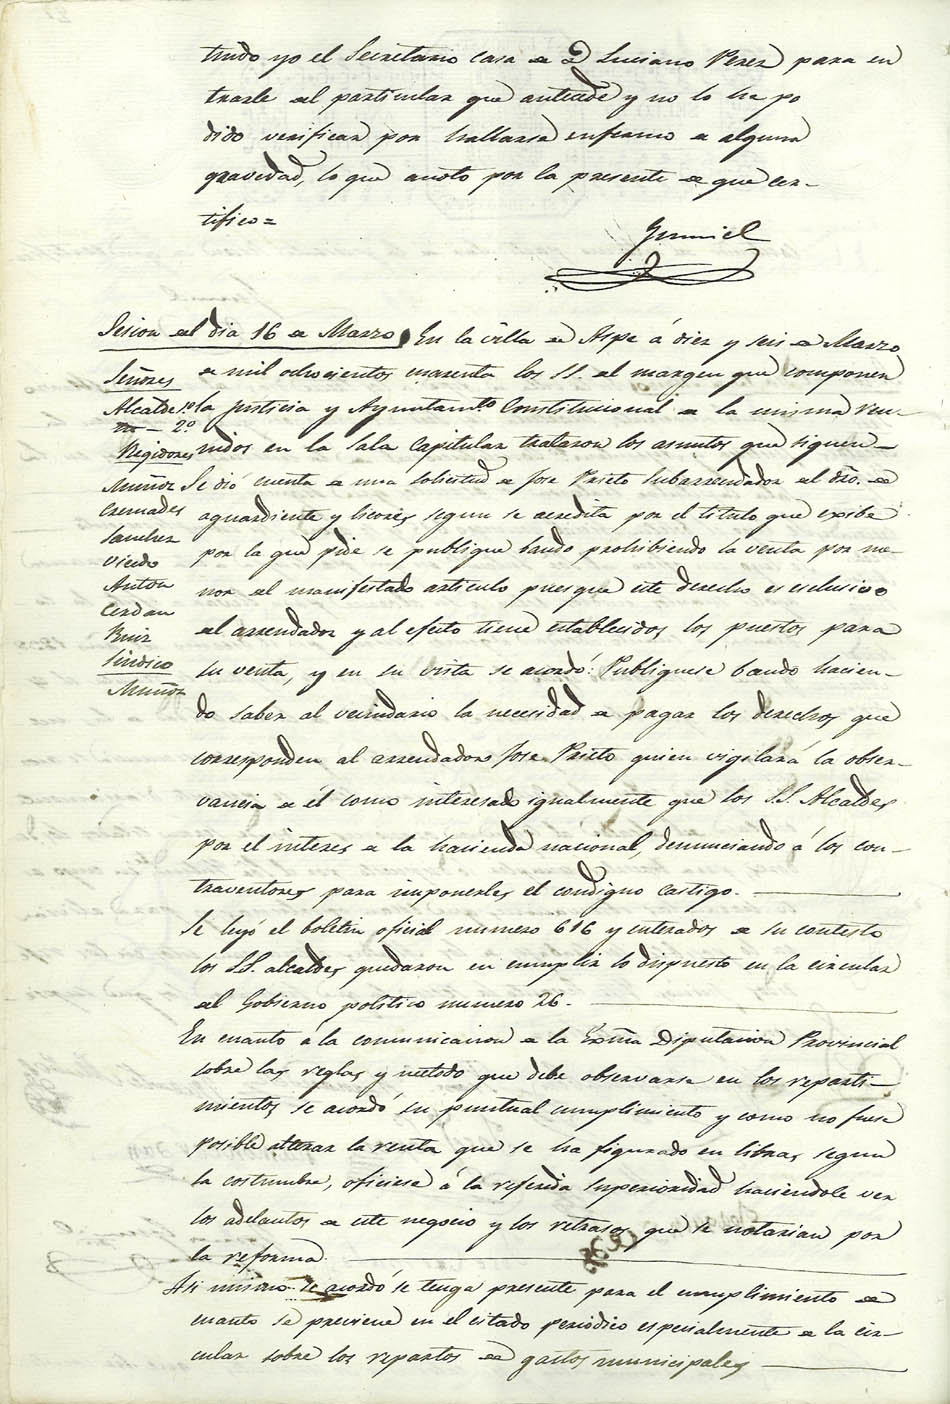 tuido yo el Secretario casa de D Luciano Perez para en
trarle del particular que antecede y no lo he po
dido verificar por hallarse enfermo de alguna
gravedad, lo que anoto por la presente de que cer-
tifico=
Gumiel
Sesion del dia 16 de Marzo En la villa de Aspe á diez y seis de Marzo
de mil ochocientos cuarenta los SS. del margen que componen
la Justicia y Ayuntamto Constitucional de la misma reu-
nidos en la Sala Capitular trataron los asuntos que siguen—
Señores
Alcaldes 1o
2o
Regidores
Muñoz
Cremades
Sanchez
Viedo
Anton
Cerdan
Ruiz
Sindico
Muñoz
Se dió cuenta de una solicitud de Jose Prieto Subarrendador del dro. de
aguardiente y licores segun se acredita por el titulo que exibe
por la que pide se publique bando prohibiendo la venta por me-
nor del manifestado articulo puesque este derecho es esclusivo
del arrendador y al efecto tiene establecidos los puestos para
su venta, y en su vista se acordó: Publiquese bando hacien-
do saber al vecindario la necesidad de pagar los derechos que
corresponden al arrendador Jose Prieto quien vigilará la obser-
vancia de él como interesado igualmente que los S.S. Alcaldes
por el interes de la hacienda nacional, denunciando á los con-
traventores para imponerles el condigno castigo.
Se leyó el boletin oficial numero 616 y enterados de su contesto
los SS. alcaldes quedaron en cumplir lo dispuesto en la circular
del Gobierno politico numero 26.
En cuanto á la comunicacion de la Exma Diputacion Provincial
sobre las reglas y metodo que debe observarse en los reparti-
mientos se acordó su puntual cumplimiento y como no fuese
posible alterar la renta que se ha figurado en libras segun
la costumbre, oficiese á la referida Superioridad haciendole ver
los adelantos de este negocio y los retrasos que se notarian por
la reforma.
Asi mismo se acordó se tenga presente para el cumplimiento de
cuanto se previene en el estado periodico especialmente de la cir-
cular sobre los repartos de gastos municipales